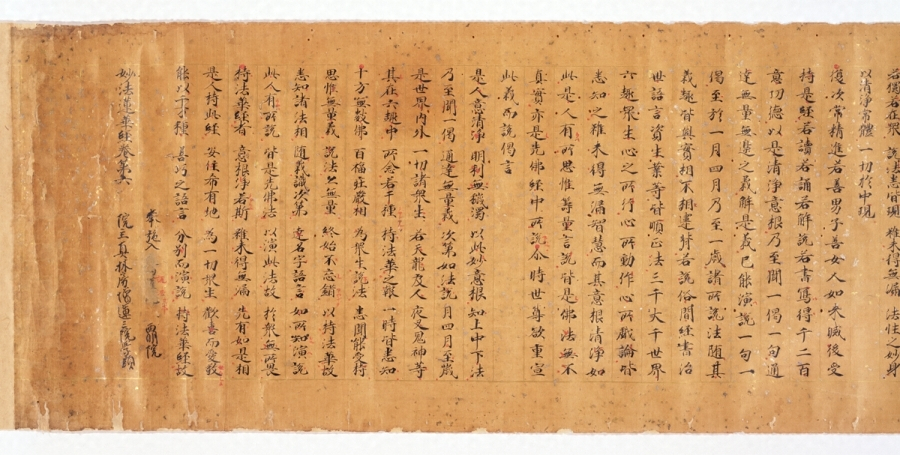 若獨若在衆 說法悉皆現 雖未得無漏 法性之妙身
以清淨常體 一切於中現
復次常精進若善男子善女人如來滅後受
持是經若讀若誦若解說若書寫得千二百
意功德以是清淨意根乃至聞一偈一句通
達無量無邊之義解是義已能演說一句一
偈至於一月四月乃至一歲諸所說法隨其
義趣皆與實相不相違背若說俗間經書治
世語言資生業等皆順正法三千大千世界
六趣衆生心之所行心所動作心所戲論皆
悉知之雖未得無漏智慧而其意根清淨如
此是人有所思惟籌量言說皆是佛法無不
真實亦是先佛經中所說尒時世尊欲重宣
此義而說偈言
是人意清淨 明利無穢濁 以此妙意根 知上中下法
乃至聞一偈 通達無量義 次第如法說 月四月至歲
是世界內外 一切諸衆生 若天龍及人 夜叉鬼神等
其在六趣中 所念若干種 持法華之報 一時皆悉知
十方無數佛 百福莊嚴相 為衆生說法 悉聞能受持
思惟無量義 說法亦無量 終始不忘錯 以持法華故
悉知諸法相 隨義識次第 達名字語言 如所知演說
此人有所說 皆是先佛法 以演此法故 於衆無所畏
持法華經者 意根淨若斯 雖未得無漏 先有如是相
是人持此經 安住希有地 為一切衆生 歡喜而愛敬
能以千万種 善巧之語言 分別而演說 持法華經故
妙法蓮華經卷第六